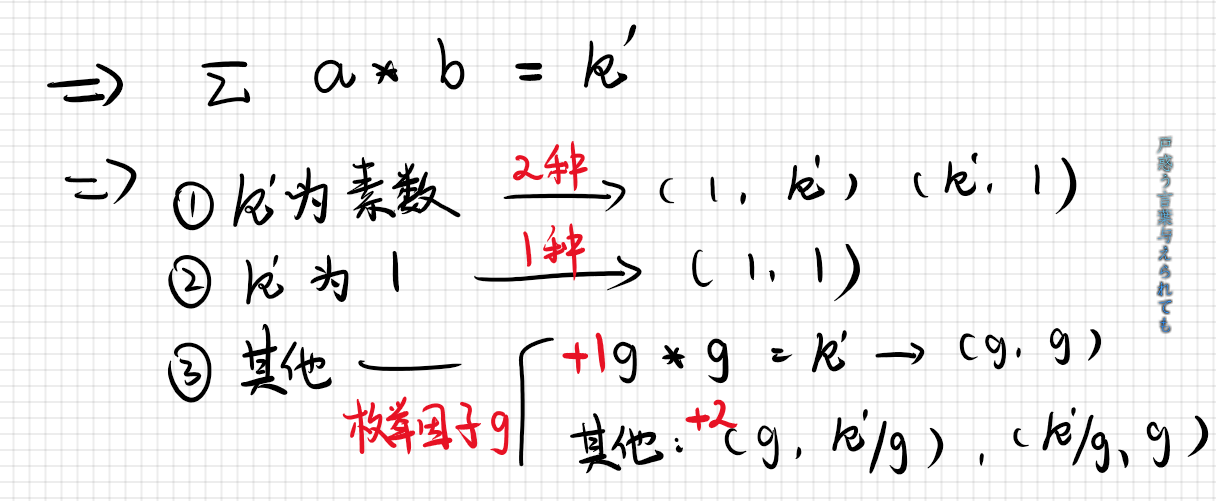 ⇒ Σ a * b = k'
⇒ ① k'为素数 2种→ (1, k') (k', 1)
② k'为 1 1种→ (1, 1)
③ 其他 — 枚举因子g
+1 g * g = k' → (g, g)
其他: +2 (g, k'/g), (k'/g, g)
戸惑う言葉与えられても